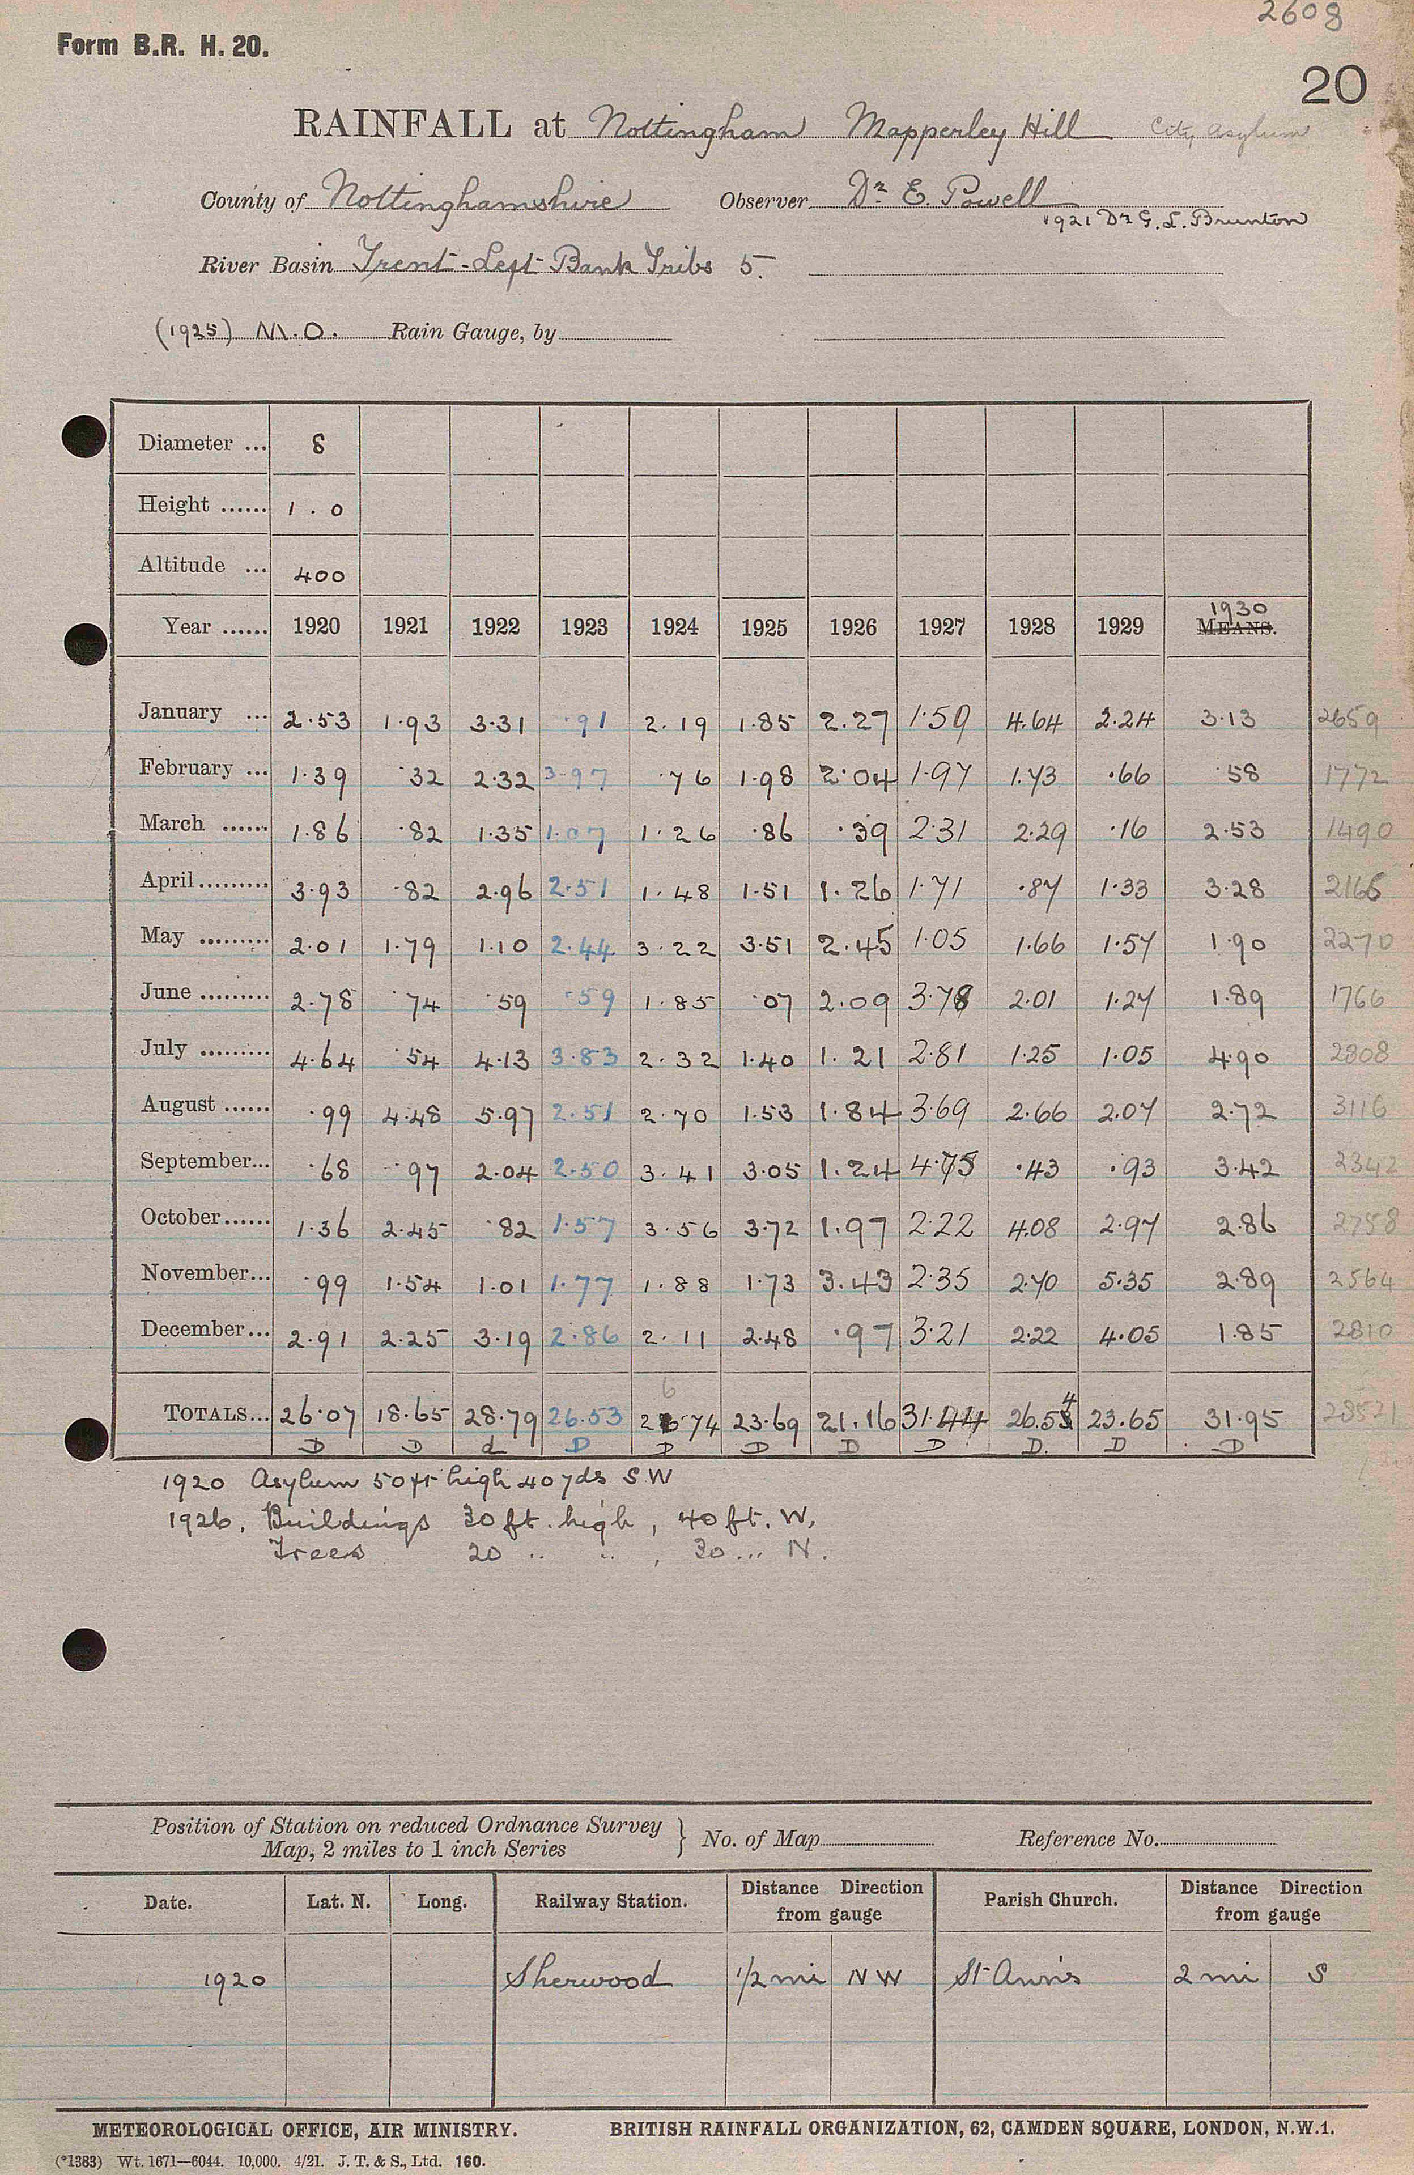 2608
Form B.R. H. 20.
20
RAINFALL at Nottingham Mapperley Hill City Asylum
County of Nottinghamshire Observer Dr E. Powell
1921 Dr G. L. Brunton
River Basin Trent-Left Bank Tribs 5.
(1925) M.O. Rain Gauge, by
Diameter ... 8
Height ...... 1.0
Altitude ... 400
1930
Year ...... 1920 1921 1922 1923 1924 1925 1926 1927 1928 1929 MEANS.
January ... 2.53 1.93 3.31 .91 2.19 1.85 2.27 1.59 4.64 2.24 3.13 2659
February ... 1.39 .32 2.32 3.97 .76 1.98 2.04 1.97 1.73 .66 .58 1772
March ...... 1.86 .82 1.35 1.07 1.26 .86 .39 2.31 2.29 .16 2.53 1490
April ......... 3.93 .82 2.96 2.51 1.48 1.51 1.26 1.71 .87 1.33 3.28 2166
May ......... 2.01 1.79 1.10 2.44 3.22 3.51 2.45 1.05 1.66 1.57 1.90 2270
June ......... 2.78 .74 .59 .59 1.85 .07 2.09 3.78 2.01 1.27 1.89 1766
July ......... 4.64 .54 4.13 3.83 2.32 1.40 1.21 2.81 1.25 1.05 4.90 2808
August ...... .99 4.48 5.97 2.51 2.70 1.53 1.84 3.69 2.66 2.07 2.72 3116
September... .68 .97 2.04 2.50 3.41 3.05 1.24 4.75 .43 .93 3.42 2342
October...... 1.36 2.45 .82 1.57 3.56 3.72 1.97 2.22 4.08 2.97 2.86 2758
November... .99 1.54 1.01 1.77 1.88 1.73 3.43 2.35 2.70 5.35 2.89 2564
December... 2.91 2.25 3.19 2.86 2.11 2.48 .97 3.21 2.22 4.05 1.85 2810
TOTALS... 26.07 18.65 28.79 26.53 26.74 23.69 21.16 31.44 26.54 23.65 31.95 28521
D D d D D D D D D. D D
1920 Asylum 50ft high 40yds S.W
1926. Buildings 30ft. high, 40ft. W,
Trees 20 .. .. , 30 ... N.
Position of Station on reduced Ordnance Survey
Map, 2 miles to 1 inch Series } No. of Map Reference No.
Date. Lat. N. Long. Railway Station. Distance Direction from gauge Parish Church. Distance Direction from gauge
1920 Sherwood 1/2 mi NW St Ann's 2 mi S
METEOROLOGICAL OFFICE, AIR MINISTRY. BRITISH RAINFALL ORGANIZATION, 62, CAMDEN SQUARE, LONDON, N.W.1.
(*1383) Wt. 1671—6044. 10,000. 4/21. J. T. & S., Ltd. 160.